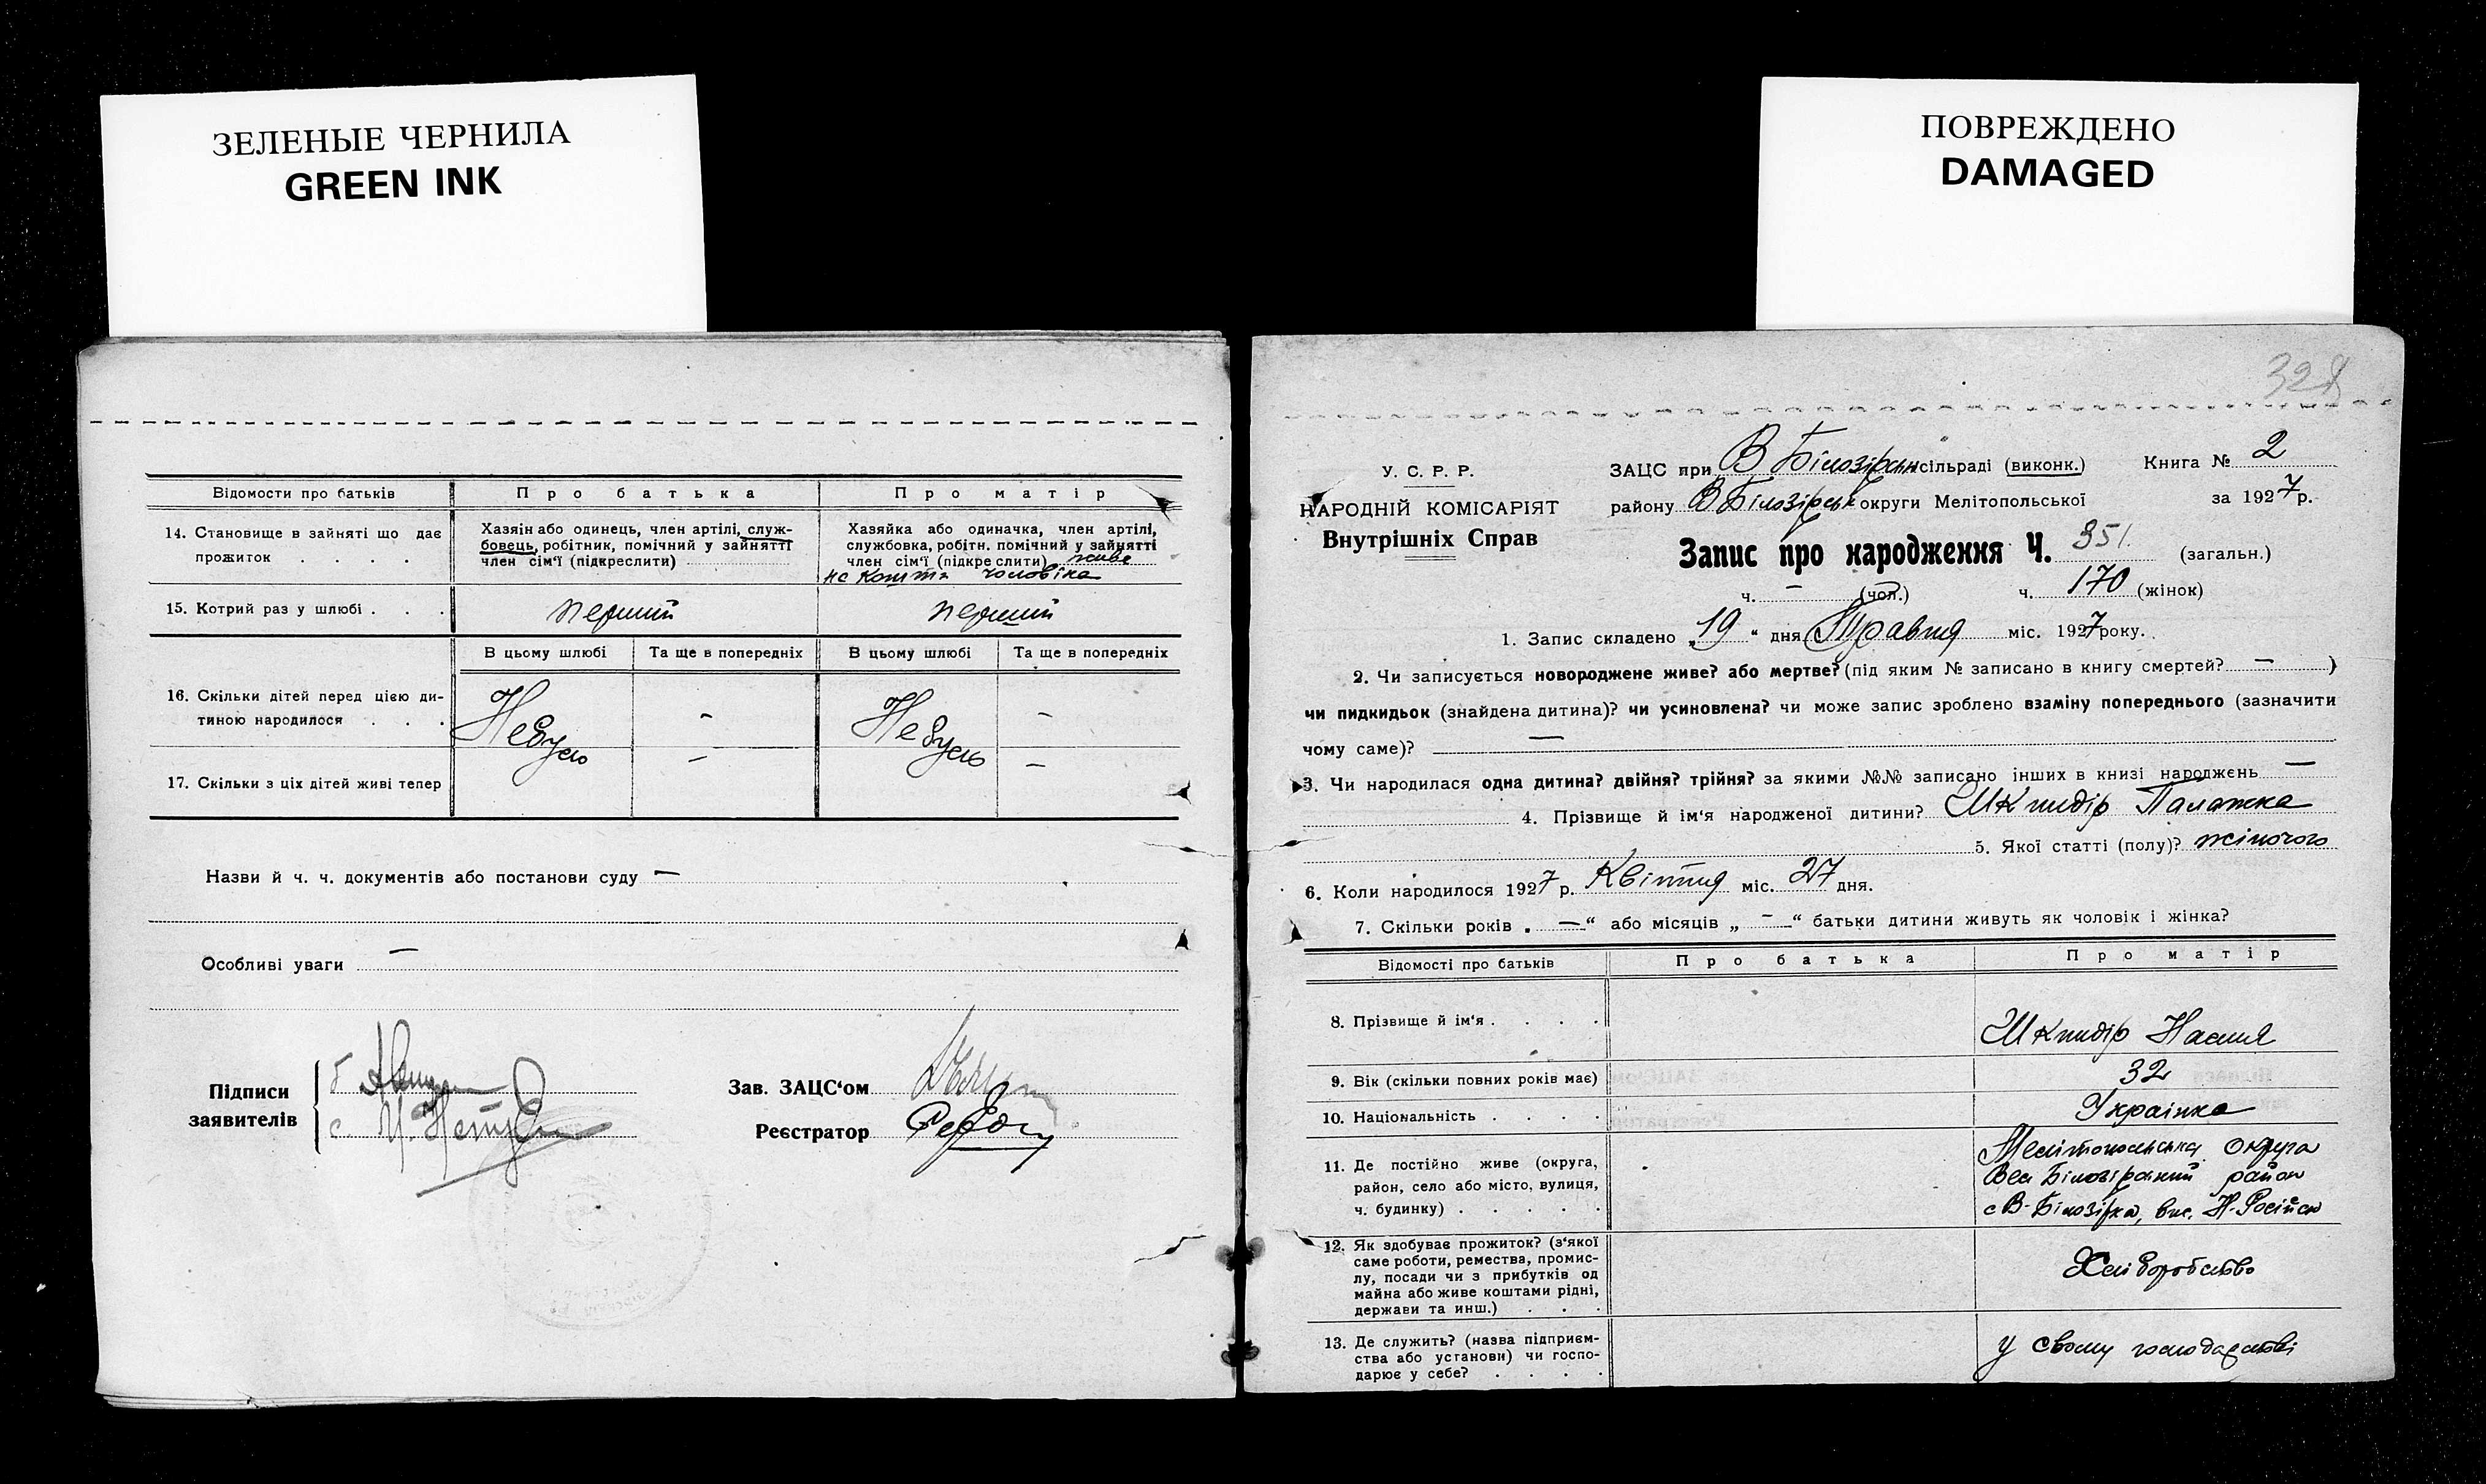 ЗЕЛЕНЫЕ ЧЕРНИЛА
GREEN INK
ПОВРЕЖДЕНО
DAMAGED
Відомости про батьків
Про батька
Про матір
14. Становище в зайняті що дає прожиток . . . .
Хазяін або одинець, член артілі, служ-
бовець, робітник, помічний у зайнятті
член сім‘ї (підкреслити)
Хазяйка або одиначка, член артілі,
службовка, робітн. помічний у зайнятті
член сім‘ї (підкреслити) живе
на кошти чоловіка
15. Котрий раз у шлюбі . . .
перший
перший
В цьому шлюбі
Та ще в попередніх
В цьому шлюбі
Та ще в попередніх
16. Скільки дітей перед цією ди-
тиною народилося . . .
Небуло
–
Небуло
–
17. Скільки з ціх дітей живі тепер
–
–
Назви й ч. ч. документів або постанови суду —
Особливі уваги —
Підписи
заявителів
Зав. ЗАЦС‘ом
Реєстратор
328
У. С. Р. Р.
НАРОДНІЙ КОМІСАРІЯТ
Внутрішніх Справ
ЗАЦС при В Білозірськ сільраді (виконк.) Книга № 2
району В Білозірськ округи Мелітопольської за 1927 р.
Запис про народження Ч. 351 (загальн.)
ч. – (чол.) ч. 170 (жінок)
1. Запис складено „19“ дня Травня міс. 1927 року.
2. Чи записується новороджене живе? або мертве? (під яким № записано в книгу смертей? — )
чи пидкидьок (знайдена дитина)? чи усиновлена? чи може запис зроблено взаміну попереднього (зазначити
чому саме)? —
3. Чи народилася одна дитина? двійня? трійня? за якими №№ записано інших в книзі народжень —
4. Прізвище й ім'я народженої дитини? Шкиндір Палажка
5. Якої статті (полу)? жіночого
6. Коли народилося 1927 р. Квітня міс. 27 дня.
7. Скільки років „ — “ або місяців „ – “ батьки дитини живуть як чоловік і жінка?
Відомості про батьків
Про батька
Про матір
8. Прізвище й ім‘я . . . .
Шкиндір Настя
9. Вік (скільки повних років має)
32
10. Національність . . . .
Українка
11. Де постійно живе (округа,
район, село або місто, вулиця,
ч. будинку) . . . . .
Мелітопольська округа
Вел Білозірський район
с В-Білозірка, вис. Н-Російськ
12. Як здобуває прожиток? (з‘якої
саме роботи, ремества, промис-
лу, посади чи з прибутків од
майна або живе коштами рідні,
держави та инш.) . . .
Хліборобство
13. Де служить? (назва підприєм-
ства або установи) чи госпо-
дарює у себе? . . . .
у свому господарстві